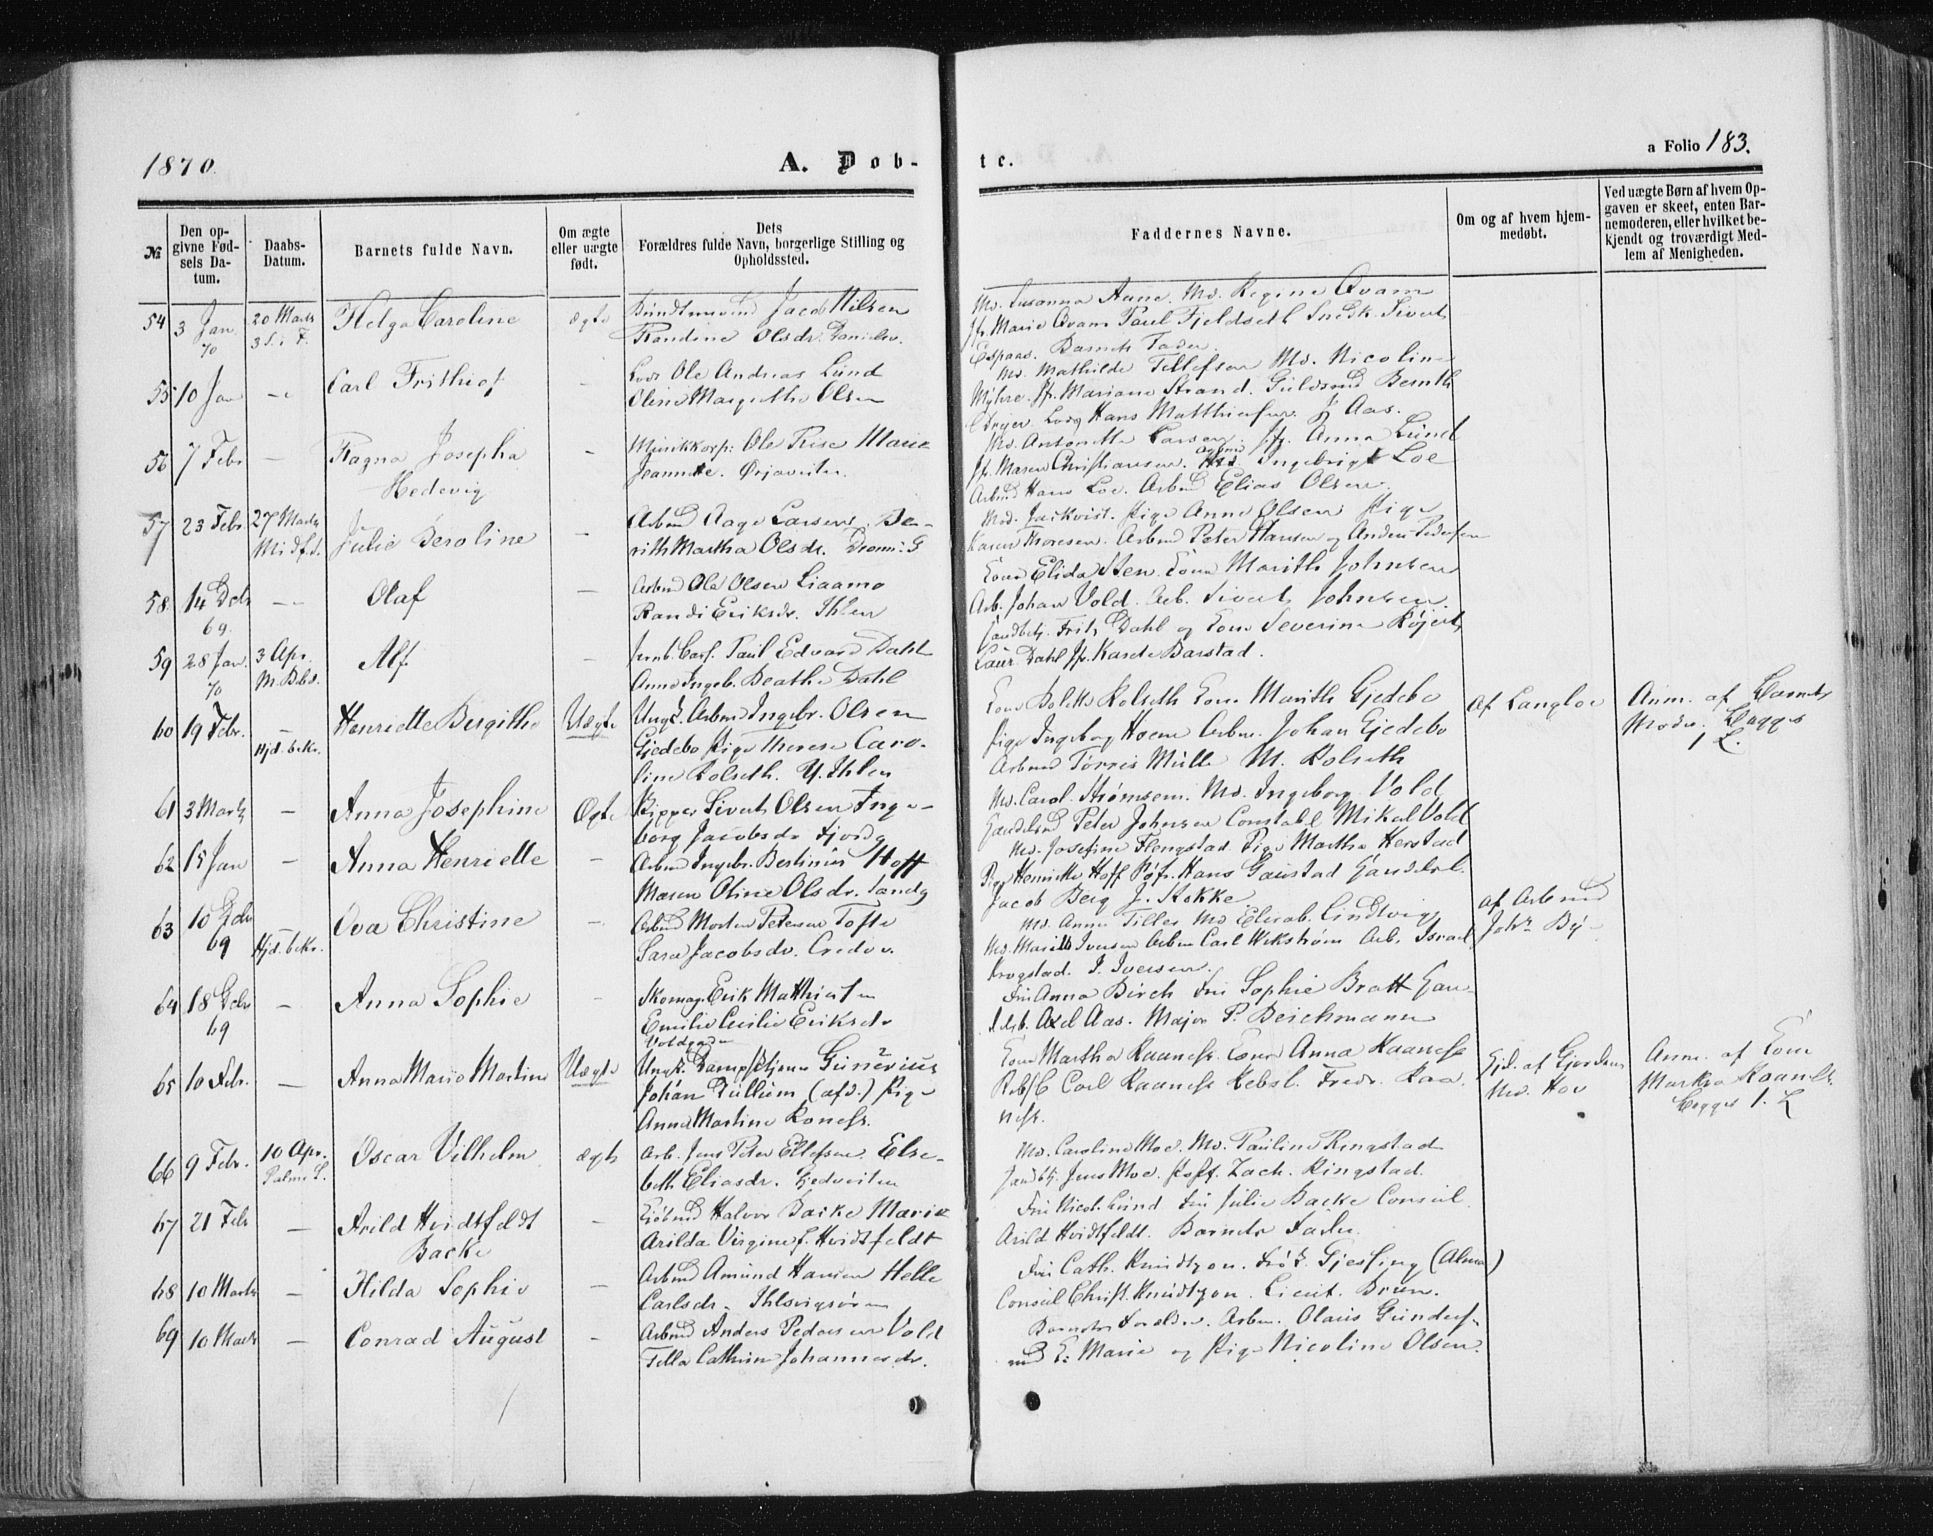 1870.
A. Døb-
te.
a Folio 183.
№
Den op-
givne Fød-
sels Da-
tum.
Daabs-
Datum.
Barnets fulde Navn.
Om ægte
eller uægte
født.
Dets
Forældres fulde Navn, borgerlige Stilling og
Opholdssted.
Faddernes Navne.
Om og af hvem hjem-
medøbt.
Ved uægte Børn af hvem Op-
gaven er skeet, enten Bar-
nemoderen, eller hvilket be-
kjendt og troværdigt Med-
lem af Menigheden.
54 3 Jan 70 20 Marts 3 S. i F. Helga Caroline ægte Jacob Nilsen
Randine Olsdr.
Md. Susanna Aune. Md. Regine Qvam
Jfr. Marie Qvam Paul Fjeldseth Snedk. Sivert
Espaas. Barnets Fader.
55 10 Jan -- Carl Frithiof - Lods Ole Andreas Lund
Oline Margrethe Olsen
Md. Mathilde Tellefsen Md. Nicoline
Myhre. Jfr. Mariane Strand. Guldsmd Bernth
Dreyer. Lods Hans Matthiesen. J Aas.
56 7 Febr - Ragna Josepha
Hedevig
- Musikkorp: Ole Rise Marie
Jeannette. Ørjaveiten
Md. Antonette Larsen. Jfr. Anna Lund
Jfr. Maren Christiansen. Ingebrigt Loe
Arbmd Hans Loe. Arbmd Elias Olsen.
57 23 Febr 27 Marts Midf.S. Julie Beroline - Arbmd Aage Larsen. Be-
rith Martha Olsdr. Dronn: G
Mad. Jackvist. Pige Anne Olsen Pige
Karen Thoresen. Arbmd Peter Hansen og Anders Pedersen
58 14 Dcb 69. -- Olaf - Arbmd Ole Olsen Liaamo
Randi Eriksdr. Ihlen
Kone Elida Sten. Kone Marith Johnsen
Arb. Johan Vold. Arb. Sivert Johnsen.
59 28 Jan. 70 3 Apr. M.Bbd. Alf. - Paul Edvard Dahl
Anne Ingeb. Beathe Dahl
Fritz Dahl og Kone Severine Røjert,
Laur. Dahl Jfr. Karete Barstad.
60 19 Febr. - Hjd. bekr. Henriette Bergithe Uægte Ungk. Arbmd Ingebr. Olsen
Gjedebo Pige Therese Caro-
line Rolseth. Y. Ihlen
Kone Marith Gjedebo
Pige Ingeborg Hoem Arbm. Johan Gjedebo
Arbmd Tørris Mülle M. Rolseth
af Langloe
Anm. af Barnets
Moder. Begges
1 L.
61 3 Marts - Anna Josephine Ægte Sivert Olsen Inge-
borg Jacobsdr Fjordg
Md. Carol. Strømsem. Md. Ingeborg Vold
Peter Johnsen Constabl Mikal Vold
62 15 Jan - Anna Henriette - Arbmd Ingebr. Bertinius Hoff
Maren Oline Olsdr. Sandg
Md. Josefine Flengstad Pige Martha Herstad
Pige Henrikke Hoff Hans Gaustad
Jacob Berg J. Stokke
63 10 69 - Hjd. bekr. Ova Christine - Arbmd Morten Petersen Tofte
Sara Jacobsdr.
Md. Anna Tiller Md Elisab. Lindtvig
Md. Marith Iversen Arbm Carl Wikstrøm Arb. Israel
Krogstad. I. Iversen.
af Arbmd
Johs By-
64 18 69 - Anna Sophie - Skomag. Erik Matthiesen
Emilie Cecilie Eriksdr
Voldgaden
Fru Anna Birch Fru Sophie Bratt
Axel Aas. Major P. Beichmann
65 10 Febr. - Anna Marie Martine Uægte Ungk. Gunerius
Johan Dullum (afd.) Pige
Anna Martine Raness.
Kone Martha Raaness. Kone Anna Raaness
Carl Raaness Fredr. Raa-
ness.
Hjd. af
Md. Hov
Anm. af Kone
Martha Raaness
Begges 1. L
66 9 Febr. 10 Apr. Palme S. Oscar Vilhelm ægte Arb. Jens Peter Ellefsen Else-
beth Eliasdr.
Md. Caroline Moe. Md. Pauline Ringstad
Jens Moe. Zach. Ringstad.
67 21 Febr - Arild Hvidtfeldt
Backe
- Kjøbmd Halvor Backe Marie
Arilda Virgine f. Hvidtfeldt
Fru Nicol. Lund Fru Julie Backe Consul
Arild Hvidtfeldt. Barnets Fader
68 10 Marts - Hilda Sophie - Arbmd Amund Hansen Helle
Carlsdr. Ihlsvigsøren
Fru Cath. Knudtzon. Frøk. Gjessing (Alma)
Consul Christ. Knudtzon. Lieut. Bruun.
69 10 Marts - Conrad August - Arbmd Anders Pedersen Vold
Cathrine Johannesdr.
Barnets Forældre. Arbm. Olaus Gunders-
Marie og Pige Nicoline Olsen.